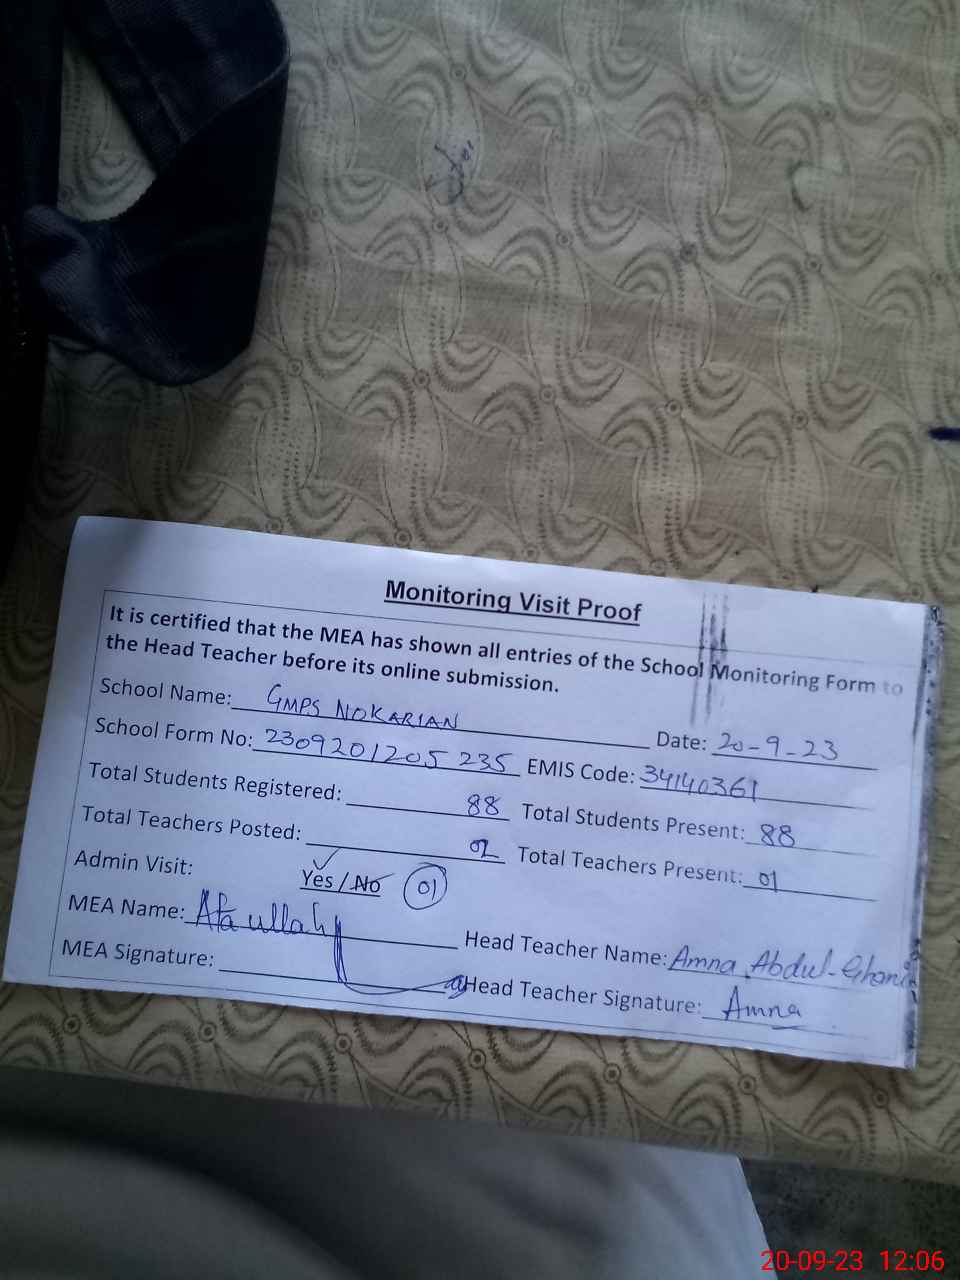 Monitoring Visit Proof
It is certified that the MEA has shown all entries of the School Monitoring Form to
the Head Teacher before its online submission.
School Name: GMPS NOKARIAN Date: 20-9-23
School Form No: 2309201205 235 EMIS Code: 34140361
Total Students Registered: 88 Total Students Present: 88
Total Teachers Posted: 02 Total Teachers Present: 01
Admin Visit: Yes / No 01
MEA Name: Ata ullah Head Teacher Name: Amna Abdul-Ghani
MEA Signature: Head Teacher Signature: Amna
20-09-23 12:06